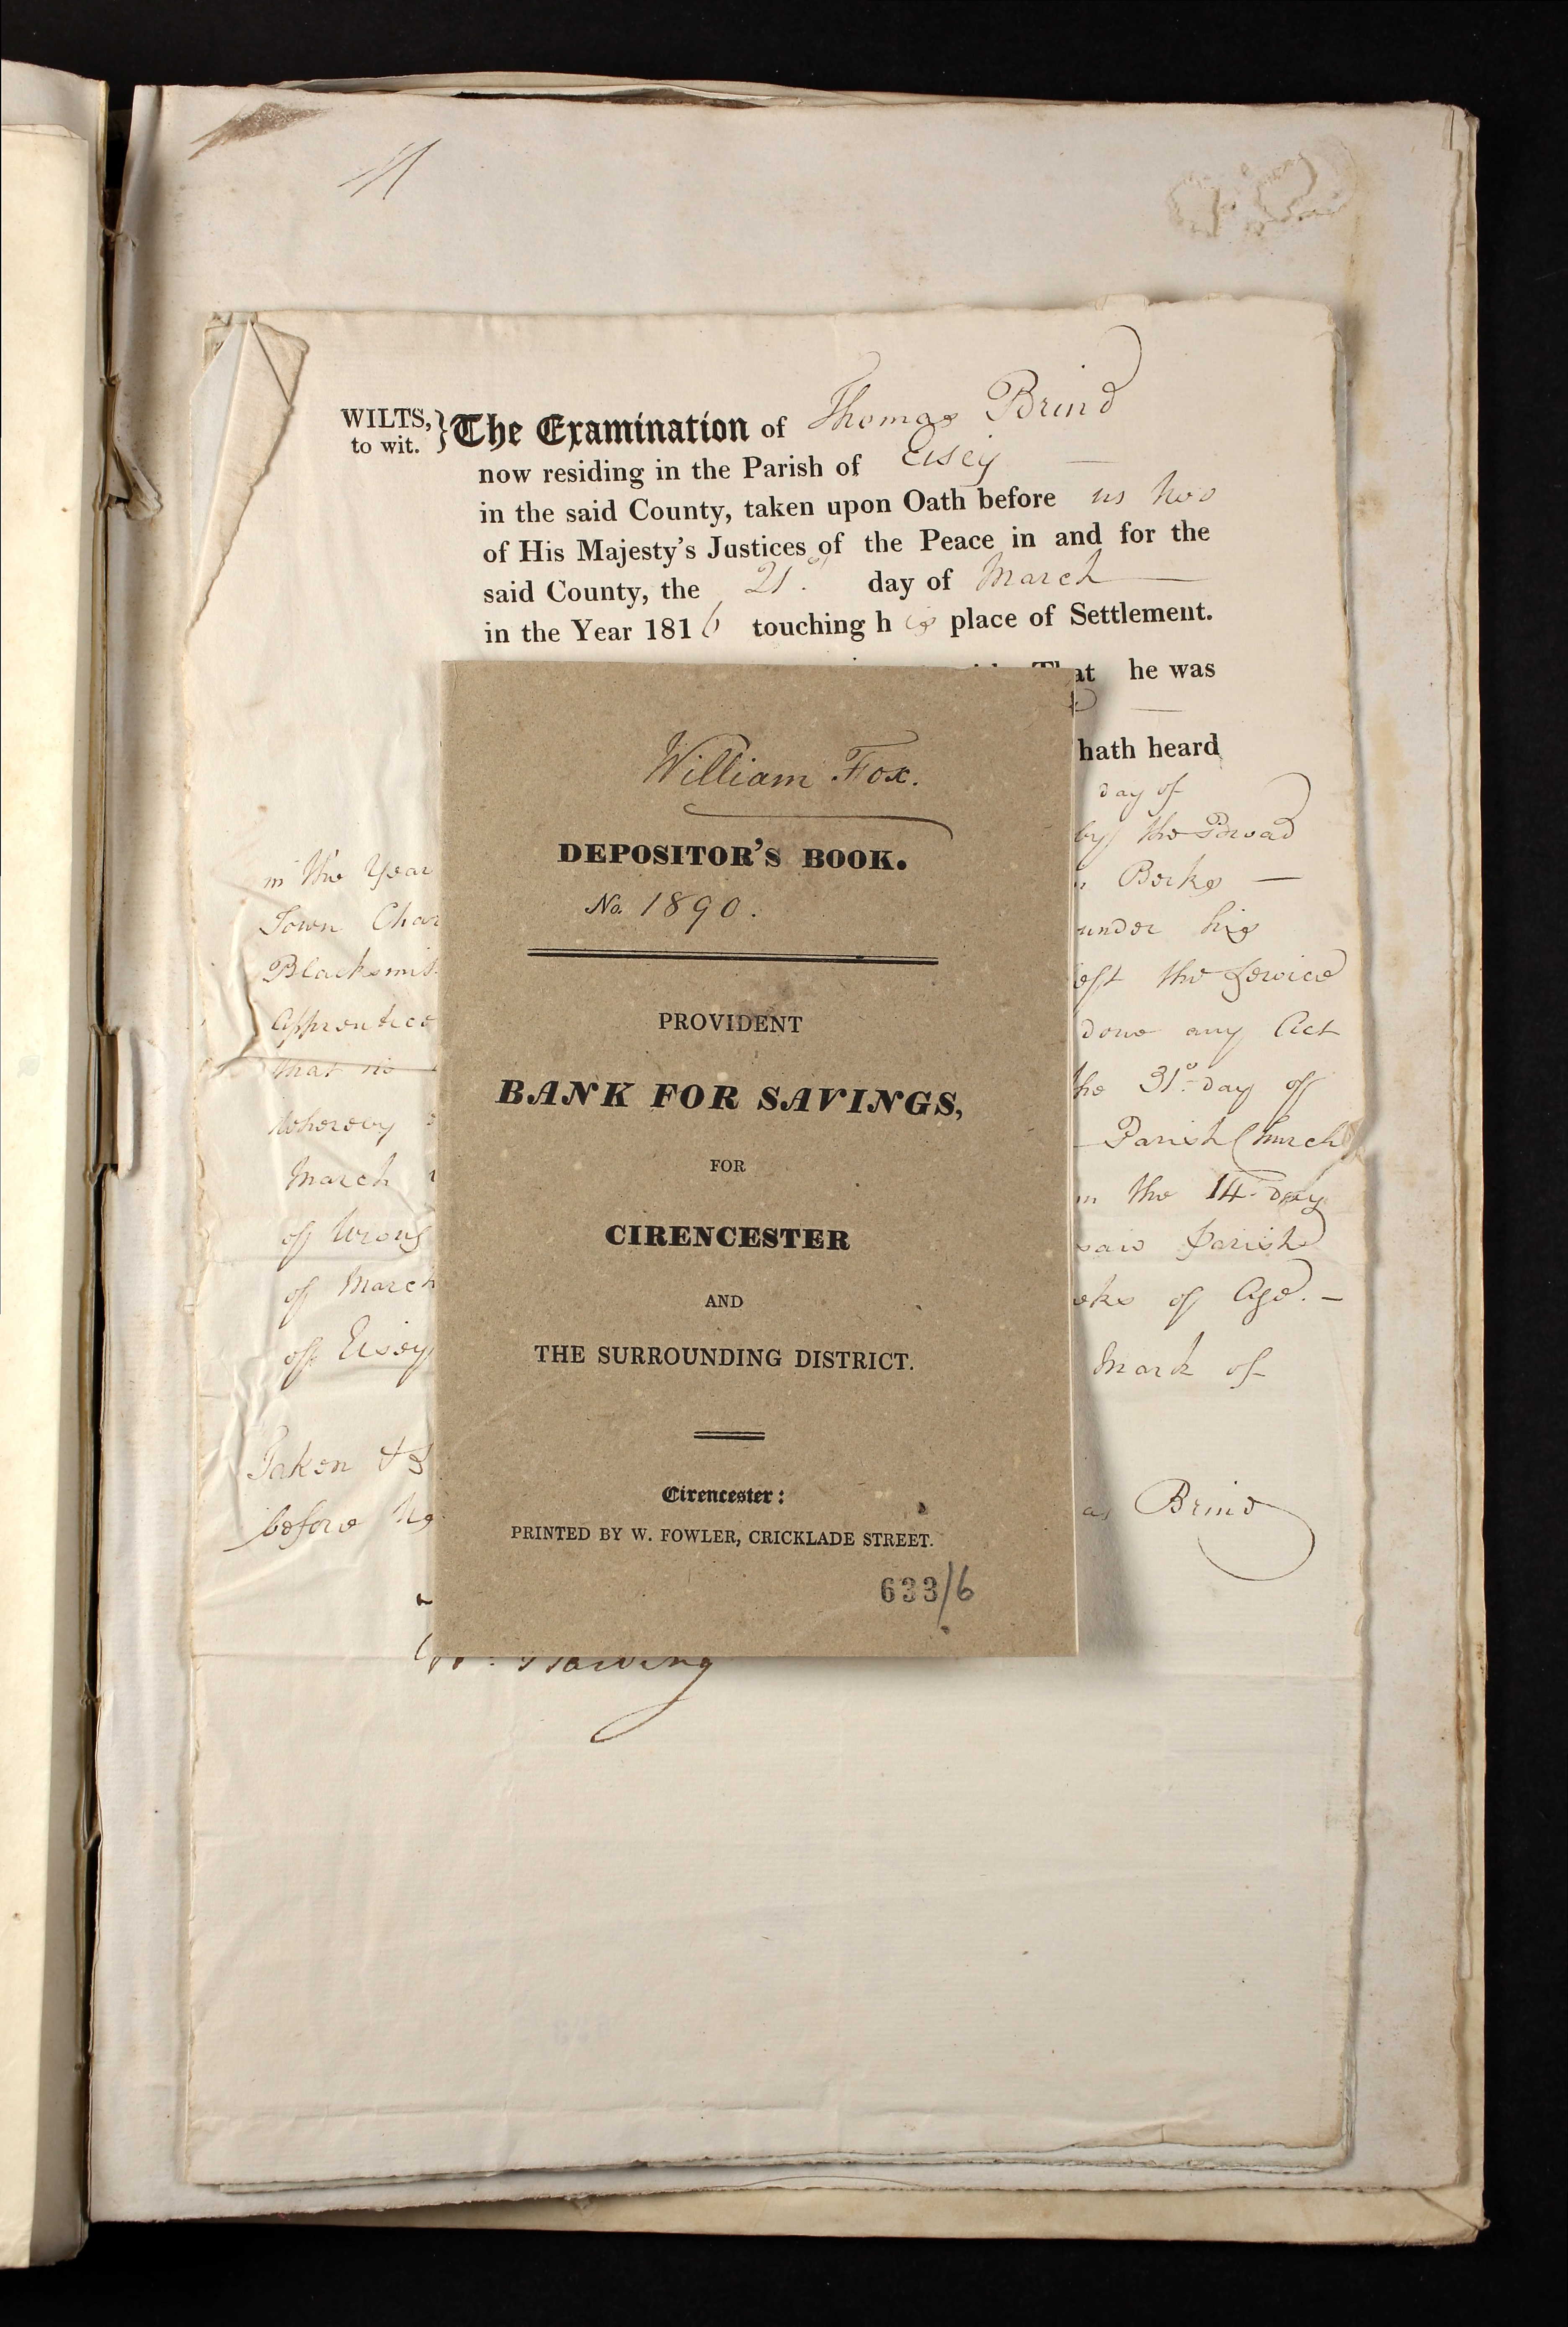 WILTS,
to wit.
} The Examination of Thomas Brind
now residing in the Parish of Eisey —
in the said County, taken upon Oath before us two
of His Majesty's Justices of the Peace in and for the
said County, the 21st day of March —
in the Year 1816 touching his place of Settlement.
That he was
hath heard
day of
in the Year by the Broad
Town Char Berks —
Blacksmit under his
Apprentice left the service
that he done any Act
whereby the 31st day of
March Parish Church
of Wroug in the 14 day
of March Parish
of Eisey eks of Age. —
Mark of
Taken & S
before us as Brind
William Fox.
DEPOSITOR'S BOOK.
No. 1890.
PROVIDENT
BANK FOR SAVINGS,
FOR
CIRENCESTER
AND
THE SURROUNDING DISTRICT.
Cirencester:
PRINTED BY W. FOWLER, CRICKLADE STREET.
633/6